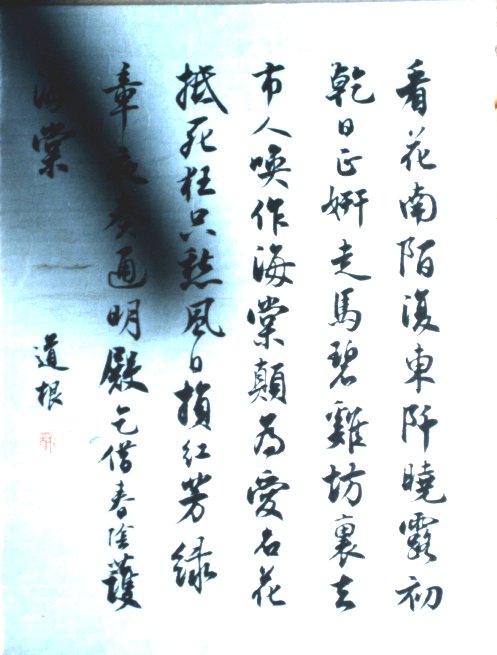 看花南陌復東阡曉露初
乾日正姸走馬碧雞坊裏去
市人喚作海棠顛為愛名花
抵死狂只愁風日損紅芳綠
章夜奏通明殿乞借春陰護
海棠
道根